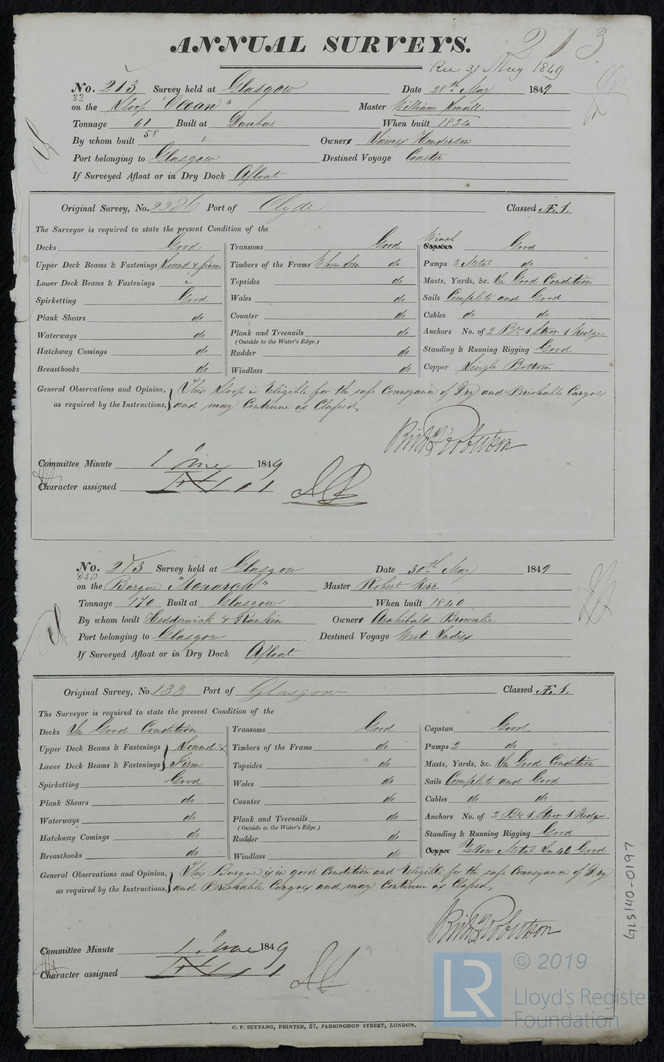 213
ANNUAL SURVEYS.
Rec 31 May 1849
No. 213 Survey held at Glasgow Date 28th May 1849
32
on the Sloop "Ocean" Master William Small
Tonnage 61 Built at Dunbar When built 1834
58
By whom built Owners James Henderson
Port belonging to Glasgow Destined Voyage Coaster
If Surveyed Afloat or in Dry Dock Afloat
Original Survey, No. Port of Clyde Classed Æ.1.
The Surveyor is required to state the present Condition of the
Decks Good Transoms Good Winch Good
Upper Deck Beams & Fastenings Sound & firm Timbers of the Frame When seen do Pumps 2 Metal do
Lower Deck Beams & Fastenings Topsides do Masts, Yards, &c. In Good Condition
Spirketting Good Wales do Sails Complete and Good
Plank Shears do Counter do Cables do do
Waterways do Plank and Treenails do Anchors No. of 2 Br 1 Strm 1 Kedge
(Outside to the Water's Edge.)
Hatchway Comings do Rudder do Standing & Running Rigging Good
Breasthooks do Windlass do Copper Single Bottom
General Observations and Opinion, This Sloop is Eligible for the safe Conveyance of Dry and Perishable Cargoes
as required by the Instructions, and may Continue as Classed
Committee Minute 1 June 1849
Character assigned Æ 1
No. 213 Survey held at Glasgow Date 30th May 1849
250
on the Barque "Monarch" Master Robert Kerr
Tonnage 170 Built at Glasgow When built 1840
By whom built Hedderwick & Rankin Owners Archibald Brownlie
Port belonging to Glasgow Destined Voyage West Indies
If Surveyed Afloat or in Dry Dock Afloat
Original Survey, No. 133 Port of Glasgow Classed Æ.1.
The Surveyor is required to state the present Condition of the
Decks In Good Condition Transoms Good Capstan Good
Upper Deck Beams & Fastenings Sound & Timbers of the Frame do Pumps 2 do
Lower Deck Beams & Fastenings Firm Topsides do Masts, Yards, &c. In Good Condition
Spirketting Good Wales do Sails Complete and Good
Plank Shears do Counter do Cables do do
Waterways do Plank and Treenails do Anchors No. of 2 Br 1 Strm 1 Kedge
(Outside to the Water's Edge.)
Hatchway Comings do Rudder do Standing & Running Rigging Good
Breasthooks do Windlass do Copper Yellow Metal In 48 Good
General Observations and Opinion, This Barque is in good Condition and Eligible for the safe Conveyance of Dry
as required by the Instructions, and Perishable Cargoes and may Continue as Classed
Committee Minute 1 June 1849
Character assigned Æ 1
GLS140-0197
LR © 2019
Lloyd's Register
Foundation
C. F. SEYFANG, PRINTER, 57, FARRINGDON STREET, LONDON.